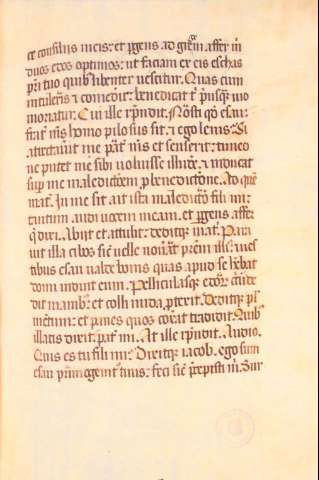 ce consiliis meis: et p̱gens ad gregē. affer m̄
duos edos optimos: ut faciam ex eis escas
pr̄i tuo quib᷒ libenter vescitur. Quas cum
intuleris ⁊ comed̓it: benedicat t̄ pᵘsq̄ȝ mo
moriatur. Cui ille rn̄dit. Nosti qđ esau
frat̓ m̄s homo pilosus sit. ⁊ ego lenis: Si
attrectau̓it me pat̓ m̄s et senserit: timeo
ne putet me sibi voluisse illud̓e. ⁊ inducat
sup̱ me maledictōem p̱ benedictōne. Ad quē
mat̓. In me sit ait ista maledictō fili mi:
tantum audi vocem meam. et p̱gens affer
q̄ dixi. Abijt et attulit: deditq; mat̓. Para
uit illa cibos sic̄ velle nou̓at pr̄em illi᷒: ves
tibus esau valde bonis quas apud se hēbat
domi induit eum. Pelliculasq; edoꝝ circūde
dit manib᷒: et colli nuda p̱texit. Deditq; pl̄
mētum: et panes quos cox̓at tradidit. Quib᷒
illatis dixit. pat̓ mi. At ille rn̄dit. Audio.
Quis es tu fili mi: Dixitq; iacob. ego sum
esau p̓mogenit᷒ tuus: feci sic̄ p̄cepisti m̄. Sur